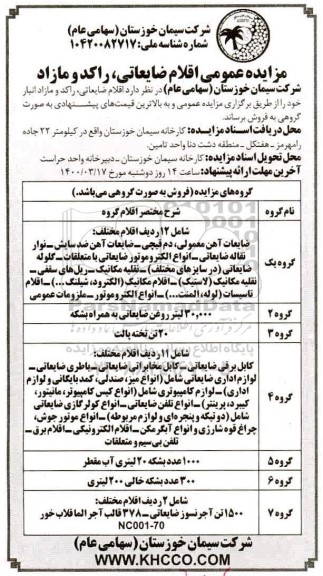 شرکت سیمان خوزستان (سهامی عام)
شماره شناسه ملی: ۱۰۴۲۰۰۸۲۷۱۷
مزایده عمومی اقلام ضایعاتی، راکد و مازاد
شرکت سیمان خوزستان (سهامی عام) در نظر دارد اقلام ضایعاتی، راکد و مازاد انبار
خود را از طریق برگزاری مزایده عمومی و به بالاترین قیمت‌های پیشنهادی به صورت
گروهی به فروش برساند.
محل دریافت اسناد مزایده: کارخانه سیمان خوزستان واقع در کیلومتر ۲۲ جاده
رامهرمز ـ هفتکل ـ منطقه دشت دنا واحد تامین.
محل تحویل اسناد مزایده: کارخانه سیمان خوزستان ـ دبیرخانه واحد حراست
آخرین مهلت ارائه پیشنهاد: ساعت ۱۴ روز دوشنبه مورخ ۱۴۰۰/۰۳/۱۷
گروه‌های مزایده (فروش به صورت گروهی می‌باشد.)
نام گروه شرح مختصر اقلام گروه
گروه یک
شامل ۱۲ ردیف اقلام مختلف:
ضایعات آهن معمولی، دم قیچی ـ ضایعات آهن ضد سایش ـ نوار
نقاله ضایعاتی ـ انواع الکتروموتور ضایعاتی با متعلقات ـ گلوله
ضایعاتی (در سایزهای مختلف) ـ نقلیه مکانیک ـ ریل‌های سقفی ـ
نقلیه مکانیک (لاستیک) ـ اقلام مکانیک (الکترود، شیلنگ ...) ـ اقلام
تاسیسات (لوله، المنت ...) ـ انواع الکتروموتور ـ ملزومات عمومی
گروه ۲ ۳۰,۰۰۰ لیتر روغن ضایعاتی به همراه بشکه
گروه ۳ ۲۰ تن تخته پالت
گروه ۴
شامل ۱۱ ردیف اقلام مختلف:
کابل برقی ضایعاتی ـ کابل مخابراتی ضایعاتی ـ باطری ضایعاتی ـ
لوازم اداری ضایعاتی شامل (انواع میز، صندلی، کمد بایگانی و لوازم
اداری) ـ لوازم کامپیوتری شامل (انواع کیس کامپیوتر، مانیتور،
کیبرد، پرینتر) ـ انواع تلفن ضایعاتی ـ انواع کولر گازی ضایعاتی
شامل (دو تیکه و پنجره‌ای و لوازم مربوطه) ـ انواع موتور جوش،
چراغ قوه شارژی و انواع آبگرمکن ـ اقلام الکترونیکی ـ اقلام برق ـ
تلفن بی‌سیم و متعلقات
گروه ۵ ۱۰۰۰ عدد بشکه ۲۰ لیتری آب مقطر
گروه ۶ ۳۰۰ عدد بشکه خالی ۲۰۰ لیتری
گروه ۷
شامل ۲ ردیف اقلام مختلف:
۱۵۰۰ تن آجر نسوز ضایعاتی ـ ۳۷۸ قالب آجر الما قلاب خور
NC001-70
شرکت سیمان خوزستان (سهامی عام)
WWW.KHCCO.COM